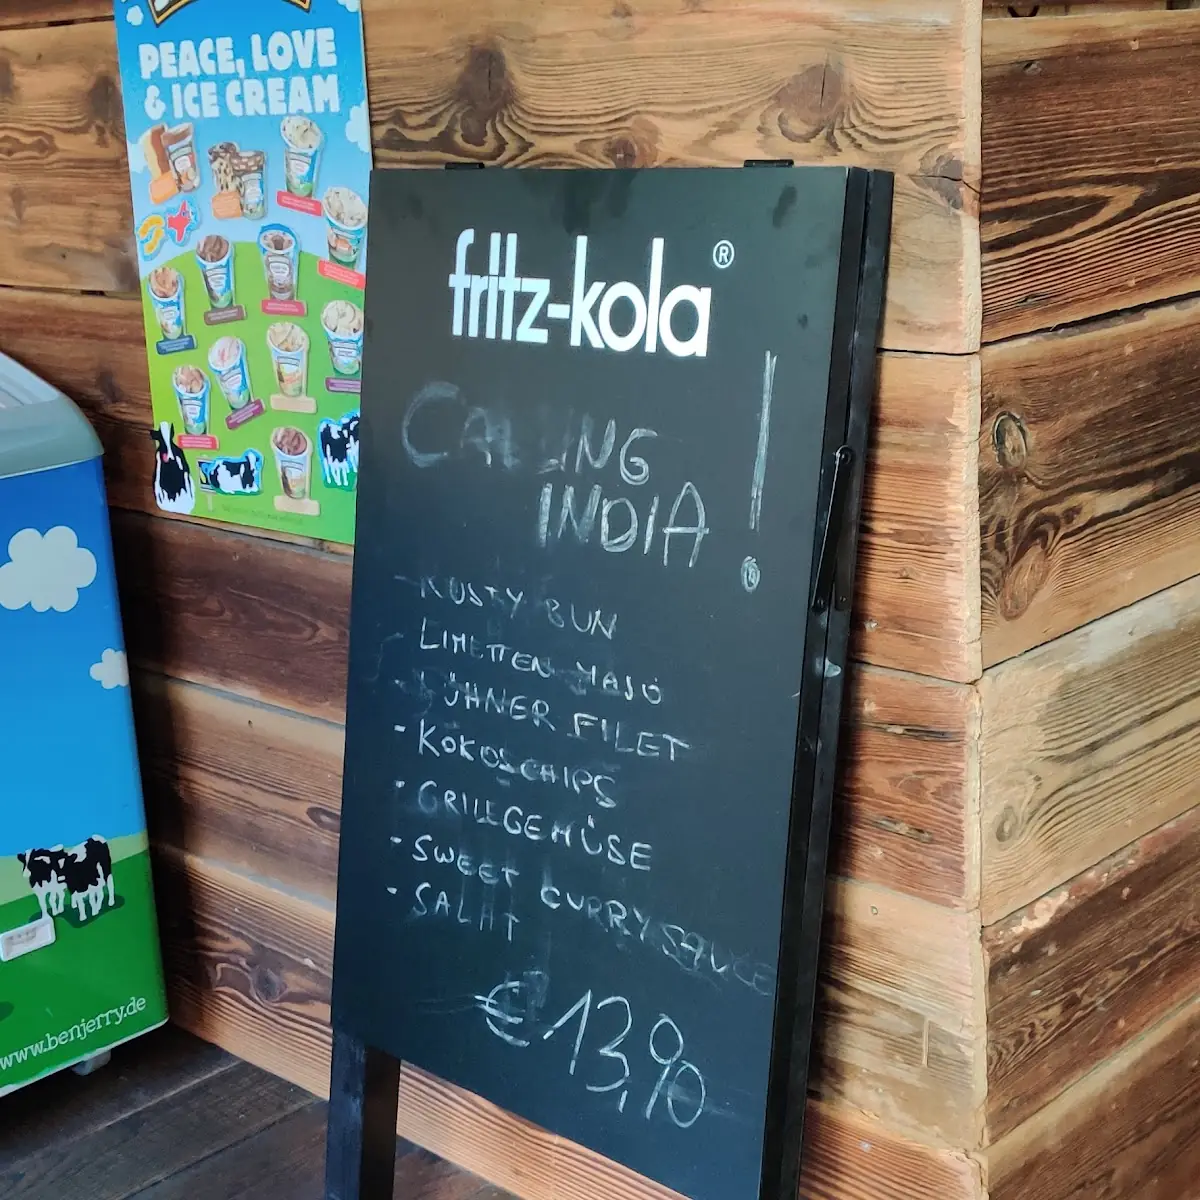 PEACE, LOVE
& ICE CREAM
fritz-kola®
CALLING
INDIA!
- RUSTY BUN
LIMETTEN MAJO
- HÜHNER FILET
- KOKOSCHIPS
- GRILLGEMÜSE
- SWEET CURRYSAUCE
- SALAT
€ 13,90
www.benjerry.de